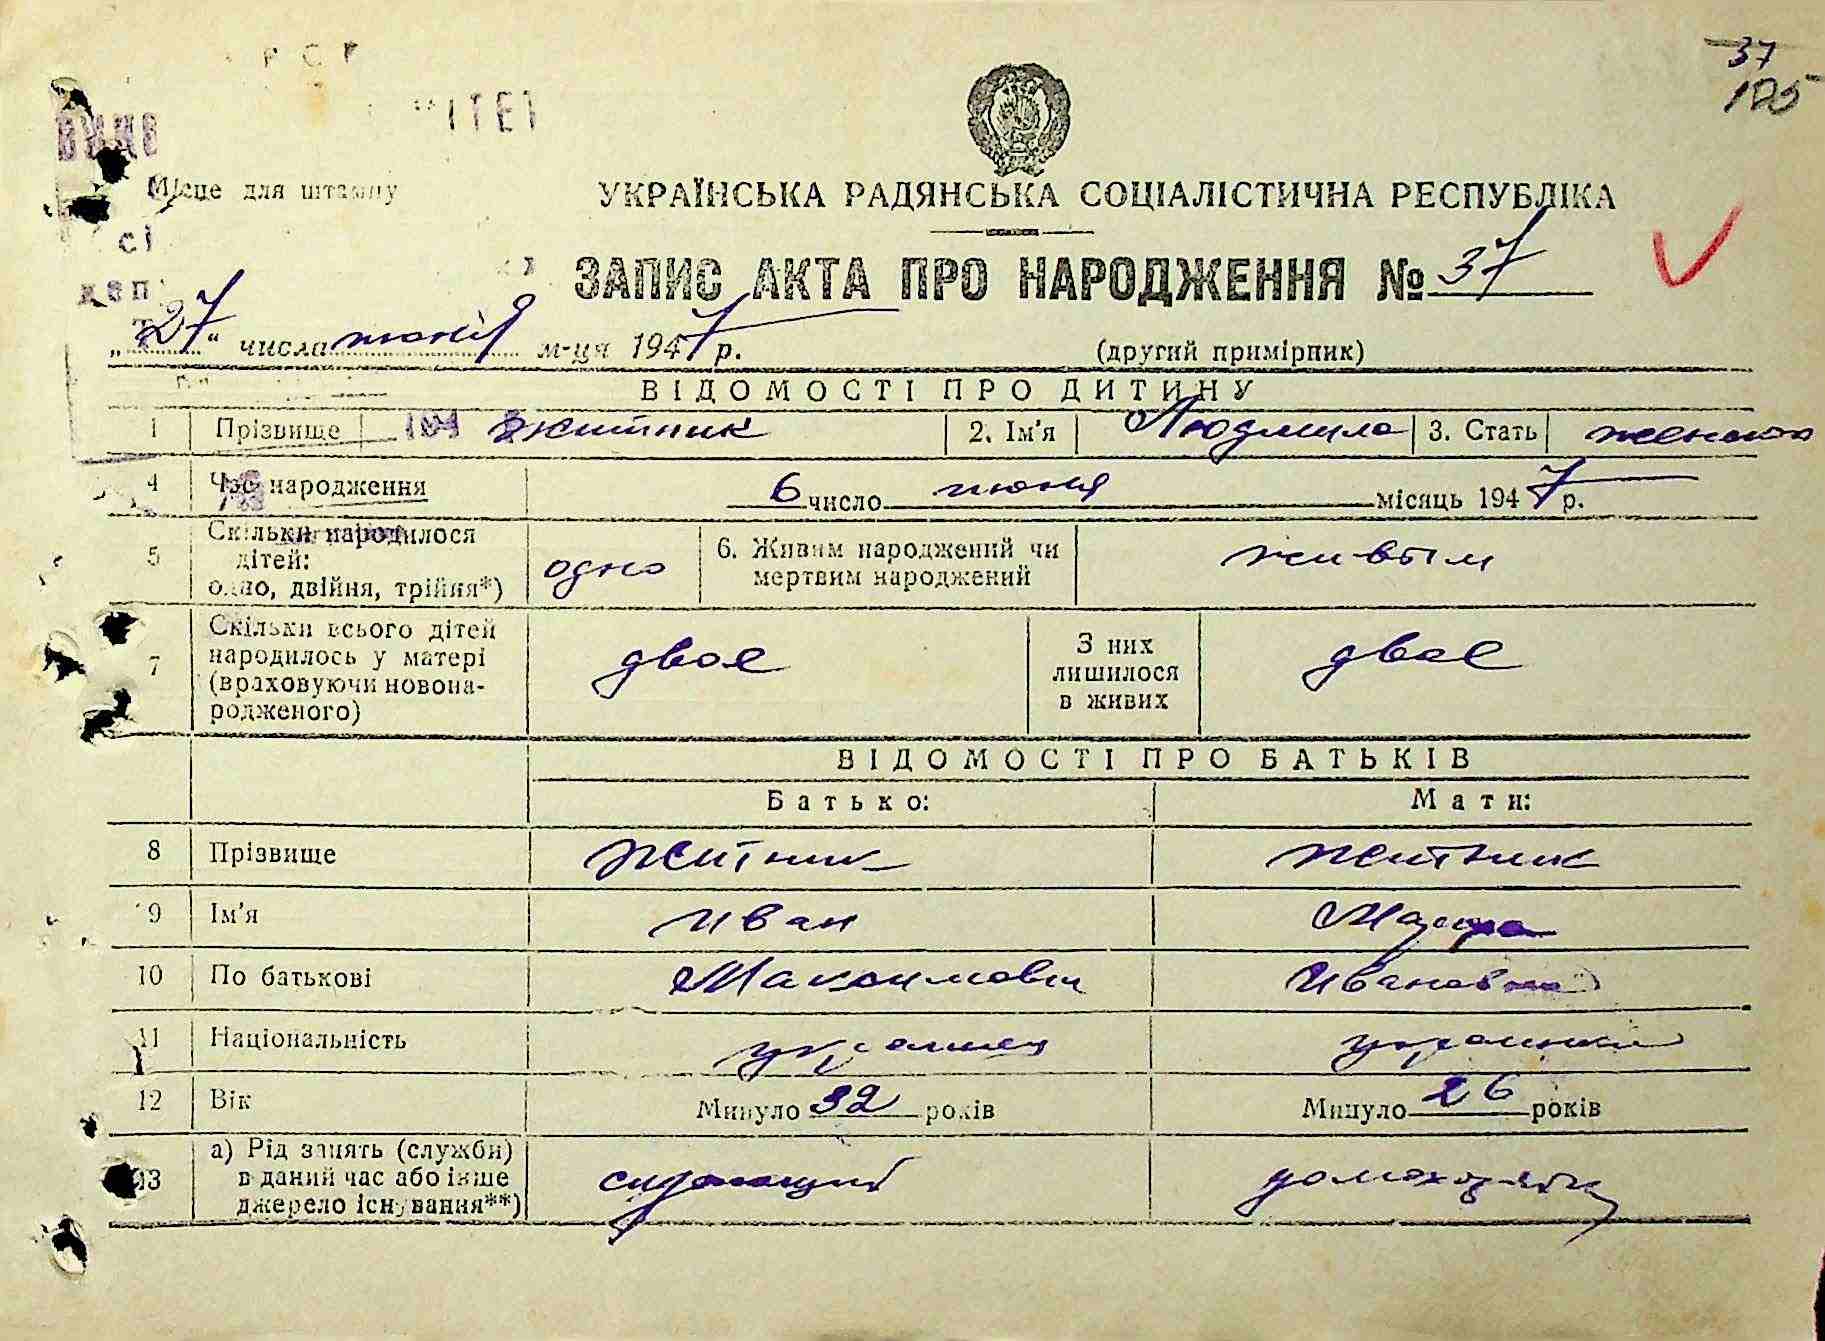 37
105
Місце для штампу
УКРАЇНСЬКА РАДЯНСЬКА СОЦІАЛІСТИЧНА РЕСПУБЛІКА
ЗАПИС АКТА ПРО НАРОДЖЕННЯ № 37
„27“ числа июня м-ця 1947 р.
(другий примірник)
ВІДОМОСТІ ПРО ДИТИНУ
1 Прізвище Житник 2. Ім'я Людмила 3. Стать
4 Час народження 6 число июня місяць 1947 р.
5 Скільки народилося дітей: одно, двійня, трійня*) одно 6. Живим народжений чи мертвим народжений живым
7 Скільки всього дітей народилось у матері (враховуючи новонародженого) двое З них лишилося в живих двое
ВІДОМОСТІ ПРО БАТЬКІВ
Батько: Мати:
8 Прізвище Житник Житник
9 Ім'я Иван
10 По батькові Максимович Ивановна
11 Національність украинец украинка
12 Вік Минуло 32 років Минуло 26 років
13 а) Рід занять (служби) в даний час або інше джерело існування**)